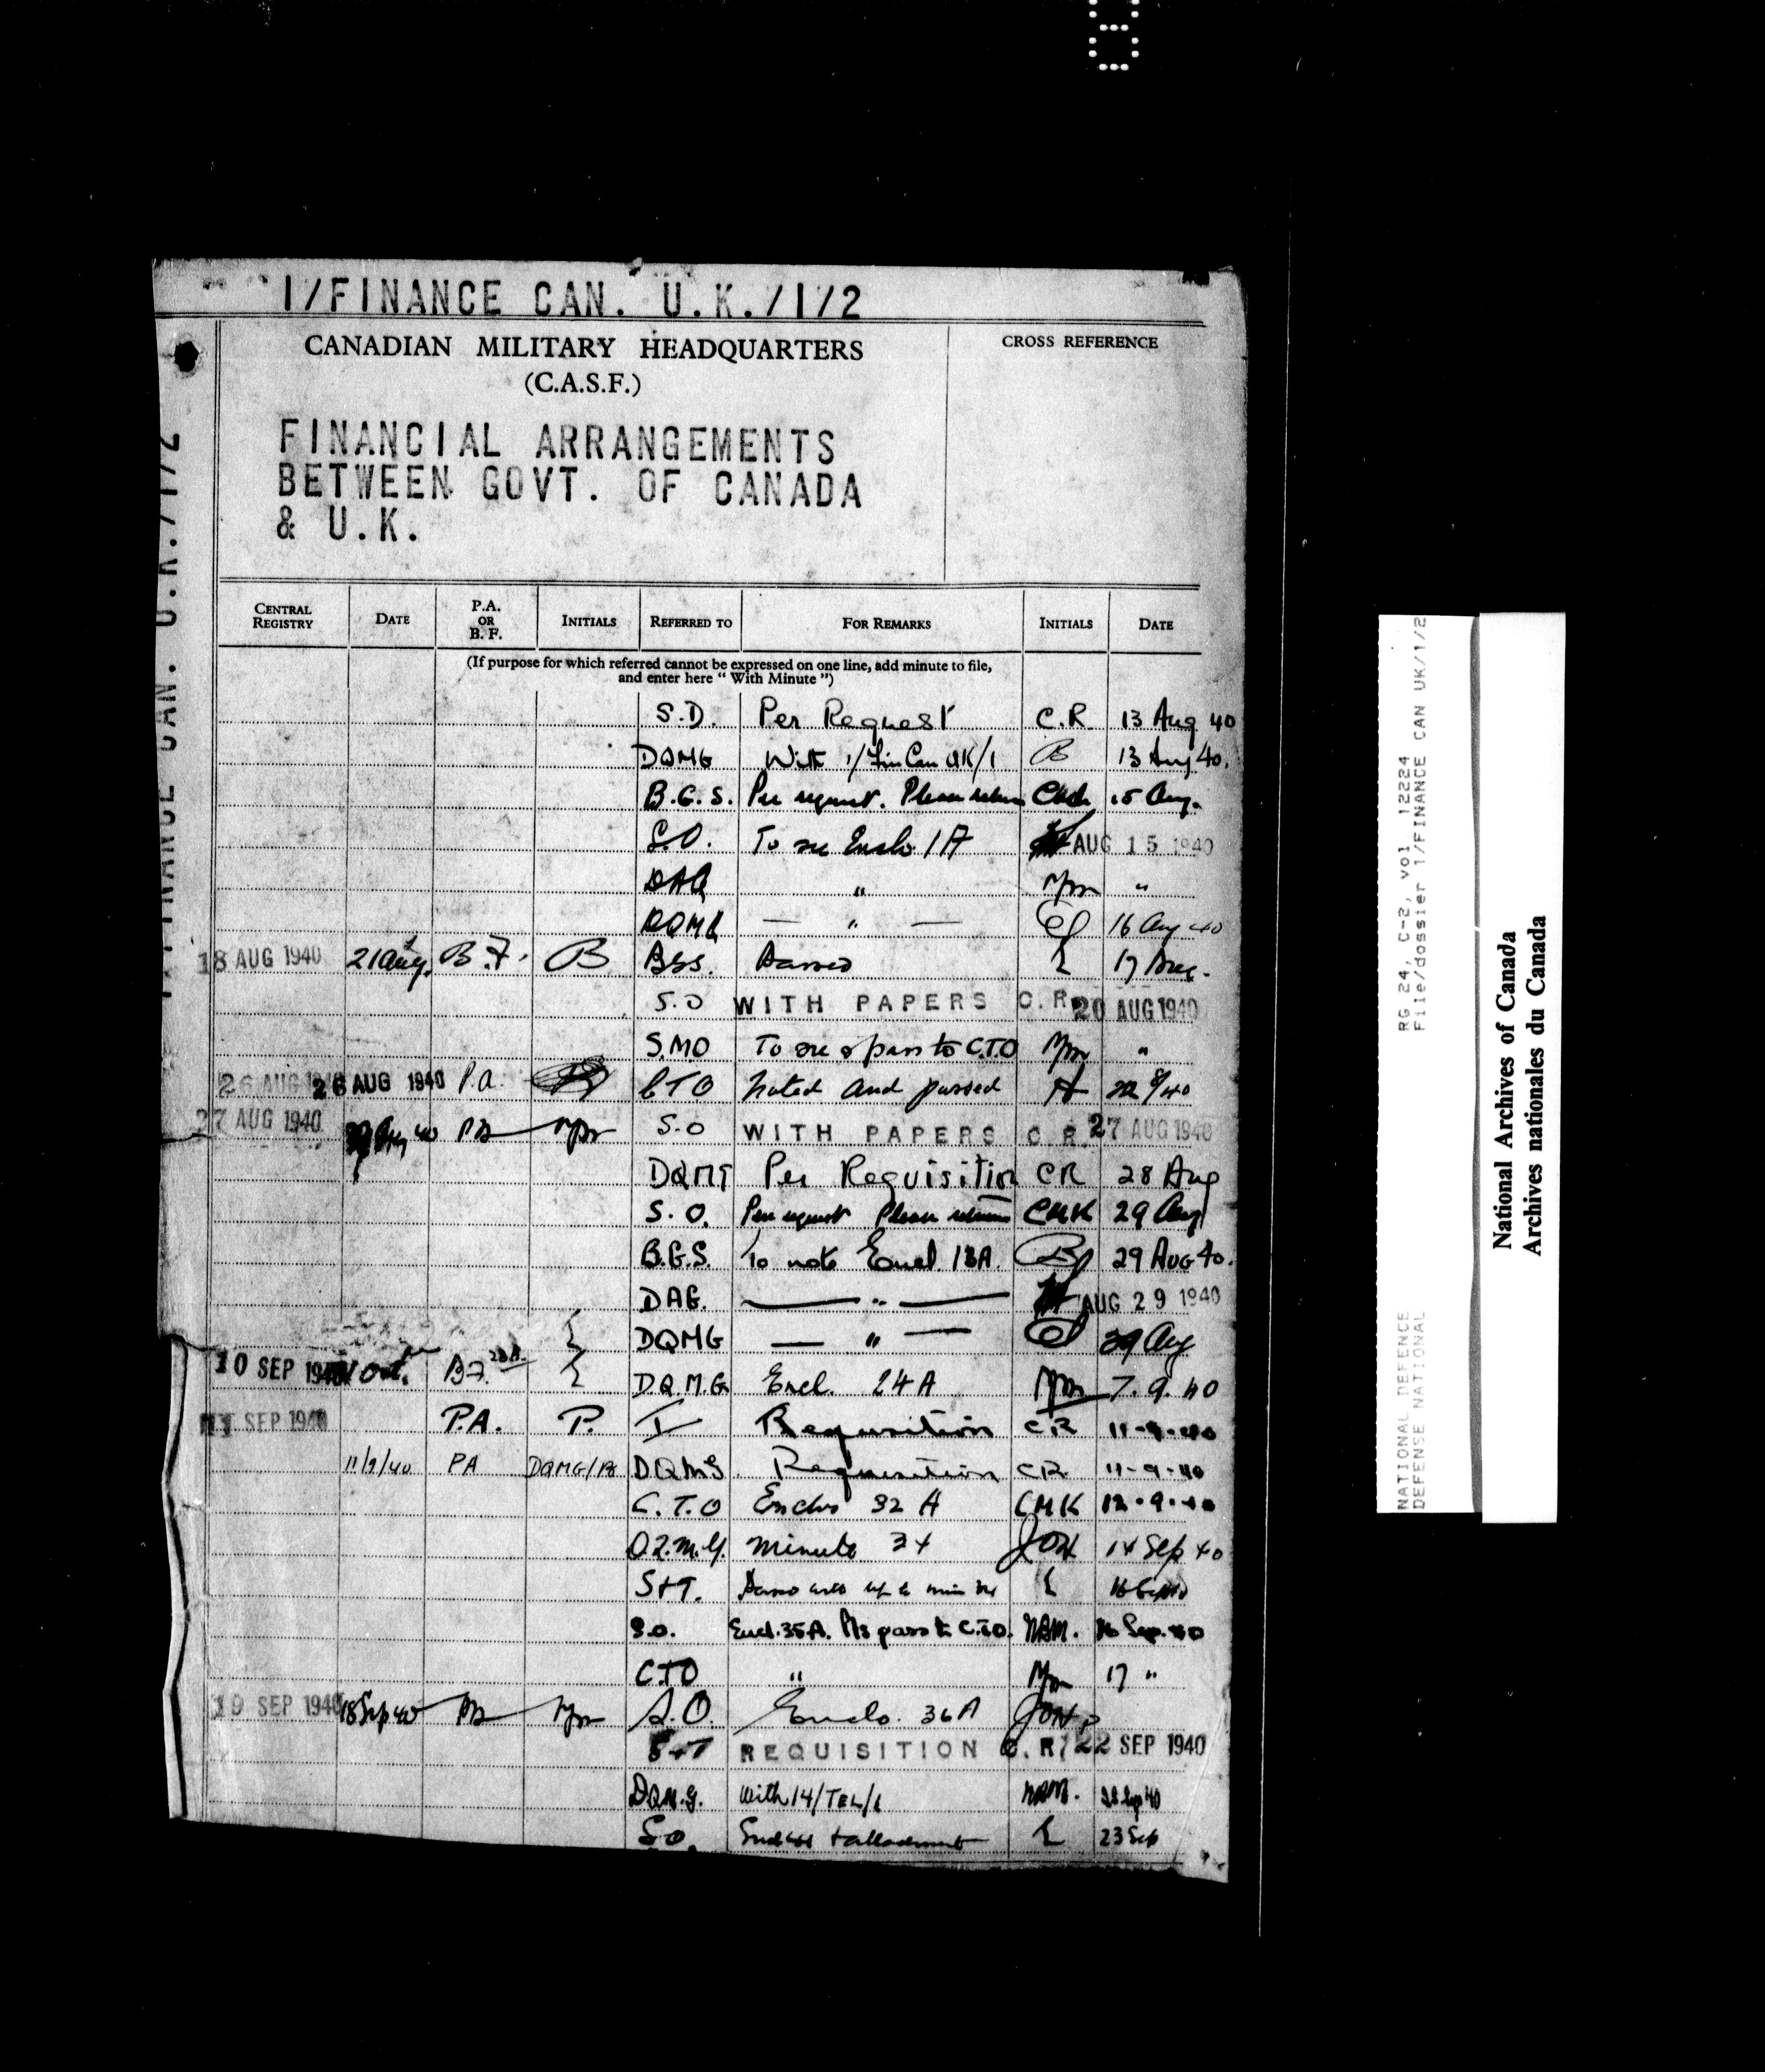 1/FINANCE CAN. U.K./1/2
CANADIAN MILITARY HEADQUARTERS
(C.A.S.F.)
CROSS REFERENCE
FINANCIAL ARRANGEMENTS
BETWEEN GOVT. OF CANADA
& U.K.
CENTRAL REGISTRY DATE P.A. OR B.F. INITIALS REFERRED TO FOR REMARKS INITIALS DATE
(If purpose for which referred cannot be expressed on one line, add minute to file,
and enter here "With Minute")
S.D. Per Request C.R 13 Aug 40
DQMG With 1/Fin Can UK/1 B 13 Aug 40.
B.G.S. Per request. Please return 15 Aug.
S.O. To see Enclo. 1A AUG 15 1940
DAG " "
DQMG — " — 16 Aug 40
18 AUG 1940 21 Aug. B.F. B BGS. 17 Aug.
S.O WITH PAPERS C.R 20 AUG 1940
S.M.O To see & pass to C.T.O "
26 AUG 26 AUG 1940 P.A. CTO Noted and passed 22/8/40
27 AUG 1940 PA S.O WITH PAPERS C.R. 27 AUG 1940
DQMG Per Requisition CR 28 Aug
S.O. Per request Please return CMK 29 Aug
B.G.S. To note Encl. 13A. 29 AUG 40.
DAG. — " — AUG 29 1940
DQMG — " — 29 Aug
10 SEP 1940 1 Oct. B.F. D.Q.M.G Encl. 24A 7.9.40
SEP 1940 P.A. P. I Requisition CR 11-9-40
11/9/40 PA DQMG/ DQMG Requisition CR 11-9-40
C.T.O Enclo 32 A CMK 12.9.40
D.Q.M.G. Minute 34 14 Sep 40
S+T. 16 Sep 40
S.O. Encl. 35A. Pls pass to C.T.O. NAM. 16 Sep. 40
CTO " 17 "
19 SEP 1940 18 Sep 40 PA S.O. Enclo. 36A
S+T REQUISITION C.R. 22 SEP 1940
DQM.G. With 14/TEL/1 NAM.
S.O. 23 Sep
RG 24, C-2, vol. 12224
File/dossier 1/FINANCE CAN UK/1/2
NATIONAL DEFENCE
DEFENSE NATIONAL
National Archives of Canada
Archives nationales du Canada